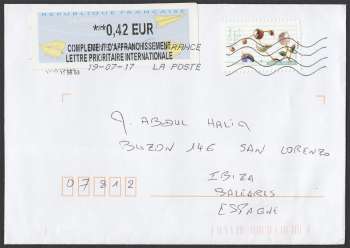 REPUBLIQUE FRANCAISE
***0,42 EUR
COMPLEMENT D'AFFRANCHISSEMENT
LETTRE PRIORITAIRE INTERNATIONALE
FRANCE
19-07-17 LA POSTE
ABDUL HALIQ
BUZON 146 SAN LORENZO
IBIZA
BALEARES
ESPAGNE
07812